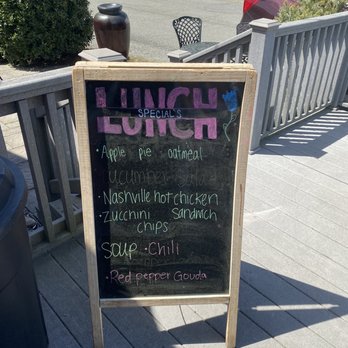 LUNCH
SPECIAL'S
• Apple pie oatmeal
cucumber
• Nashville hot chicken
• zucchini sandwich
chips
SOUP • Chili
• Red pepper Gouda